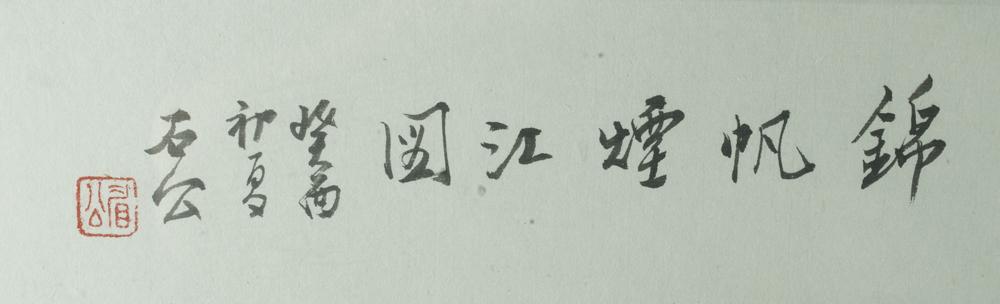 錦帆煙江圖
癸酉
初夏
石公